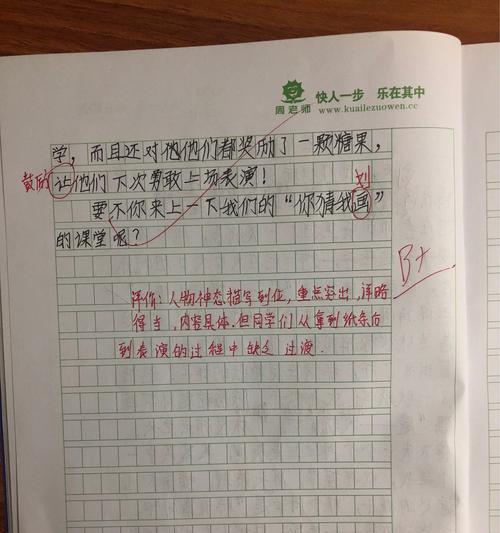 周老师
快人一步 乐在其中
www.kuailezuowen.cc
学，而且还对他他们都奖励了一颗糖果，
鼓励
让他们下次勇敢上场表演！
划
要不你来上一下我们的“你猜我画”
的课堂呢？
B+
评价：人物神态描写到位，重点突出，详略
得当，内容具体.但同学们从拿到纸条后
到表演的过程中缺乏过渡.